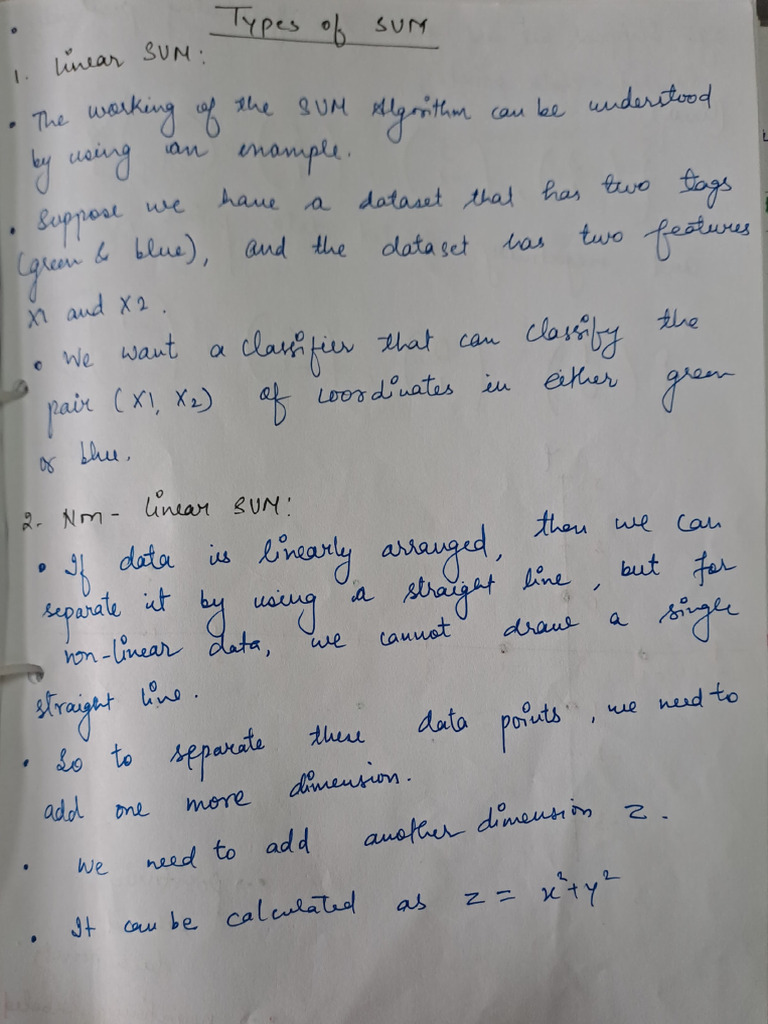 Types of SVM
1. Linear SVM:
• The working of the SVM Algorithm can be understood
by using an example.
• Suppose we have a dataset that has two tags
(green & blue), and the dataset has two features
X1 and X2.
• We want a classifier that can classify the
pair (X1, X2) of coordinates in either green
or blue.
2- Non-linear SVM:
• If data is linearly arranged, then we can
separate it by using a straight line, but for
non-linear data, we cannot draw a single
straight line.
• So to separate these data points, we need to
add one more dimension.
• We need to add another dimension z.
• It can be calculated as z = x²+y²